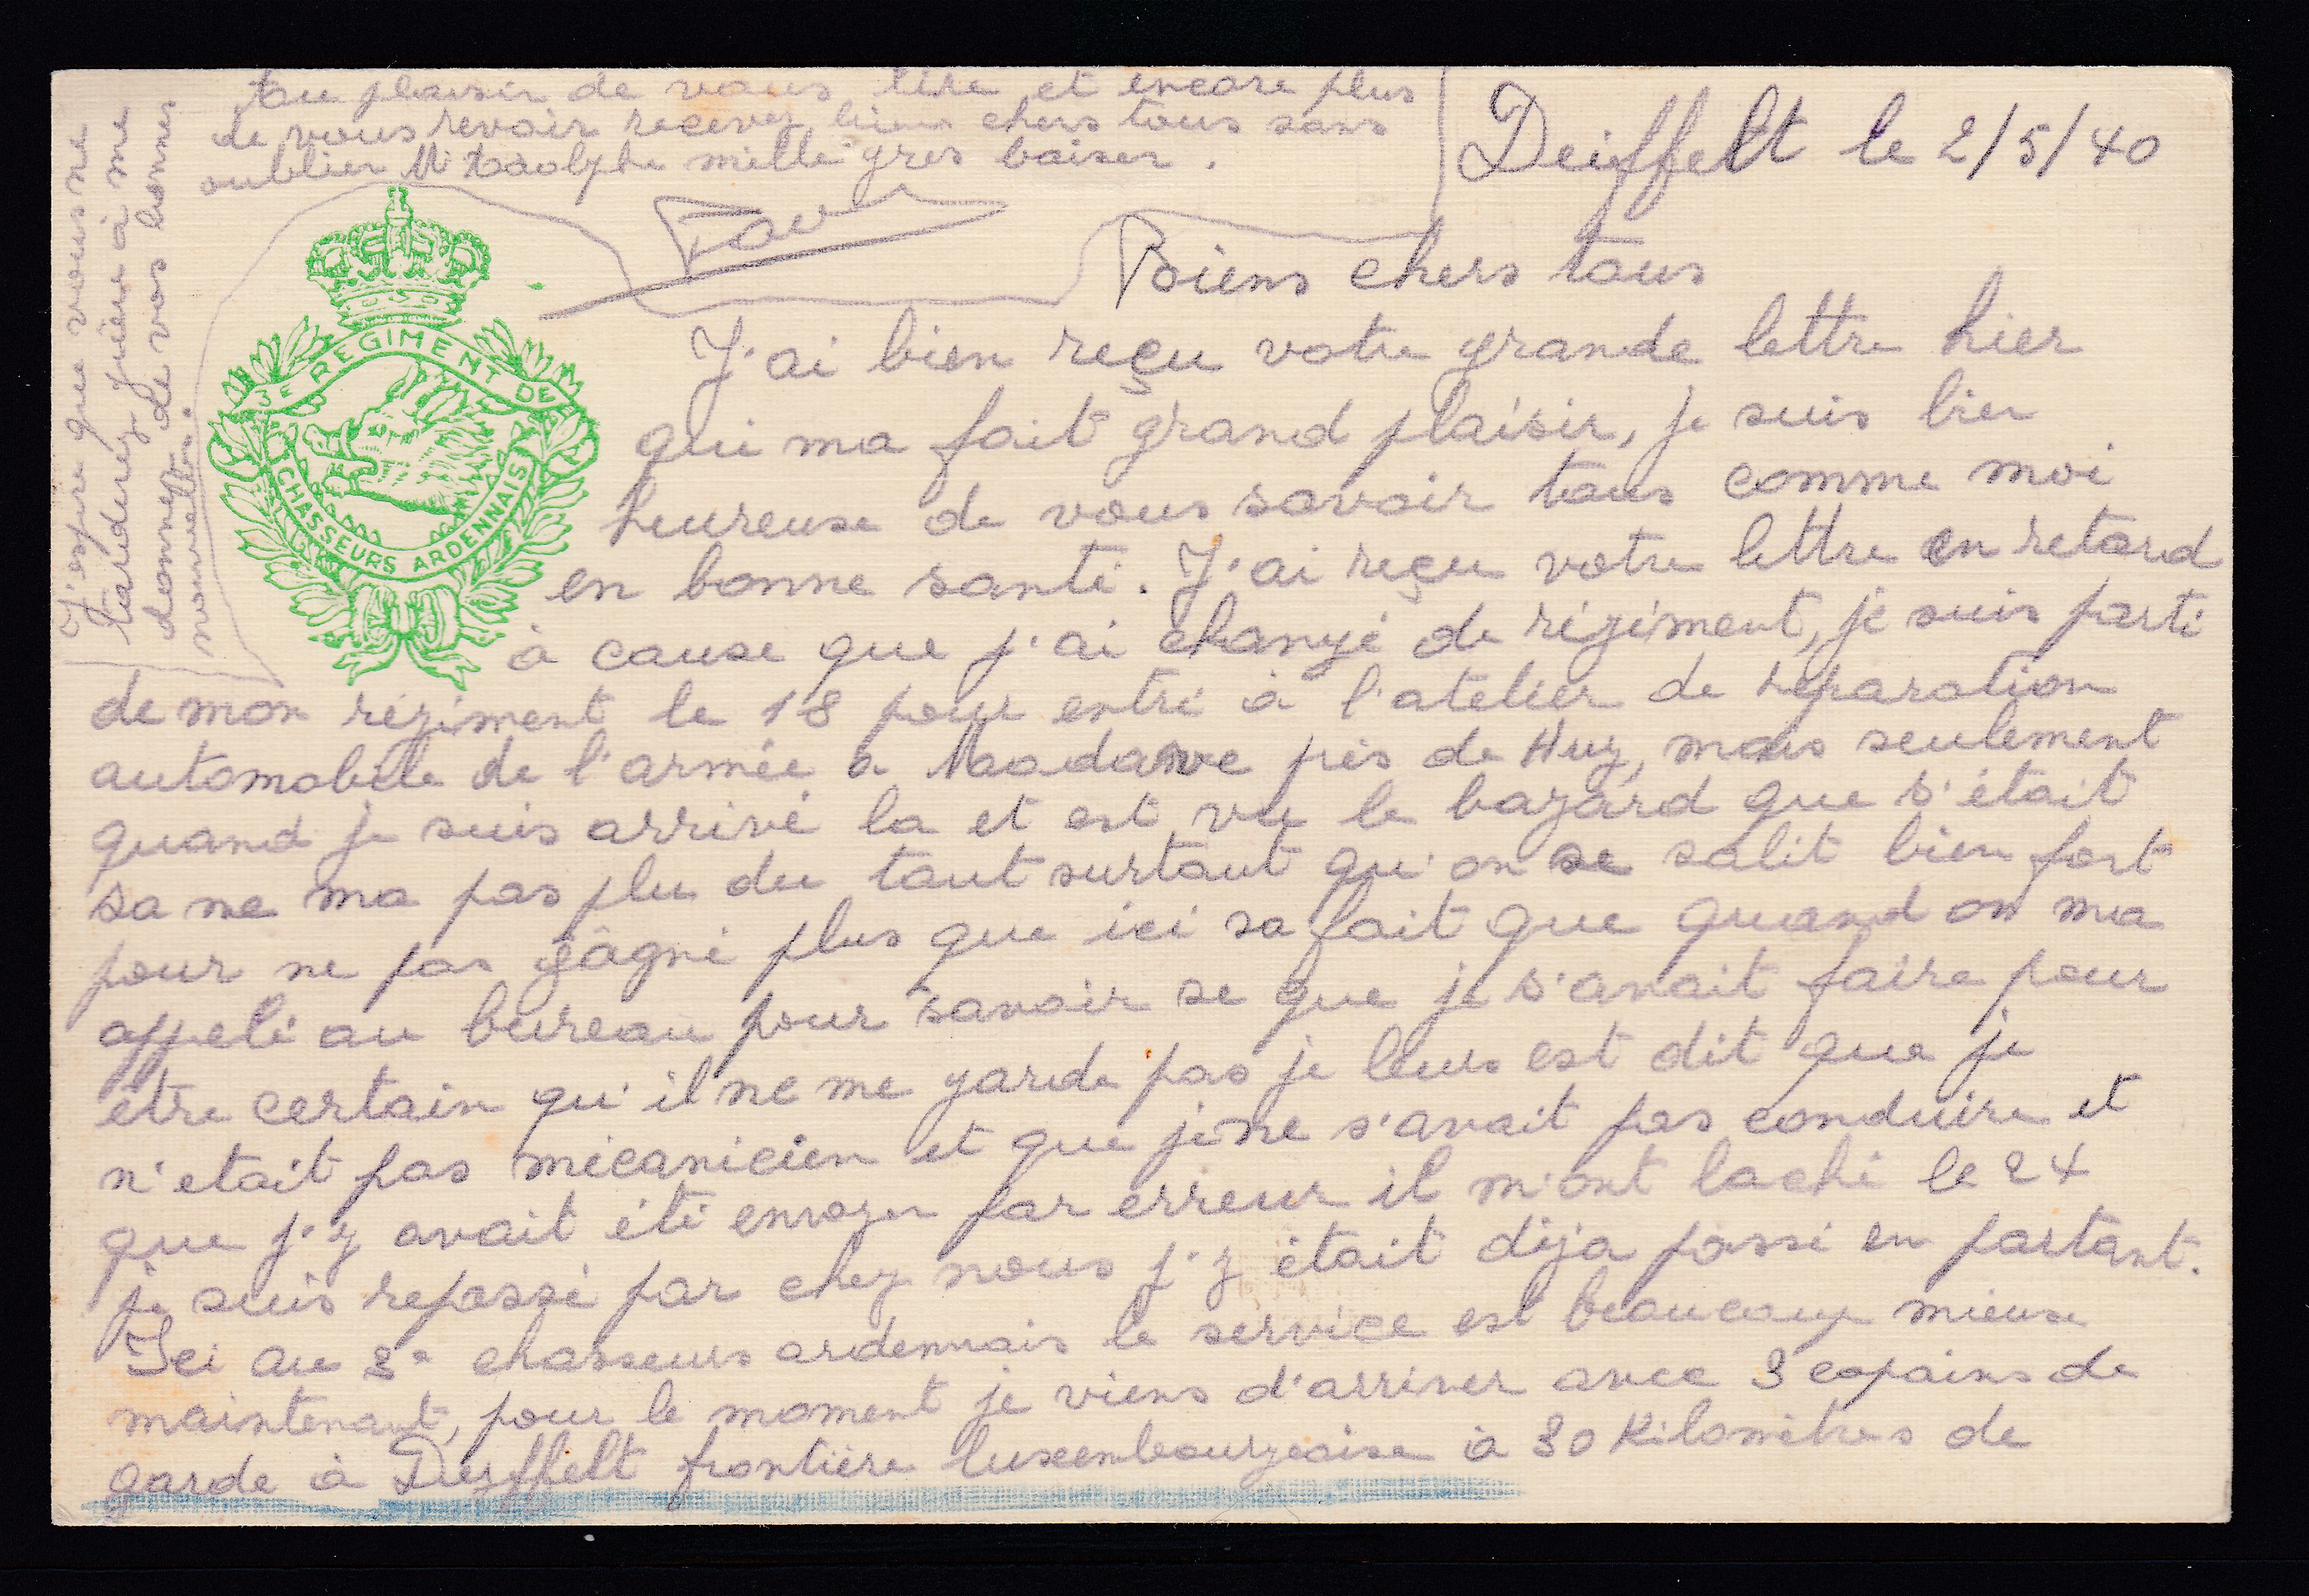 Deiffelt le 2/5/40
Biens chers tous
J'ai bien reçu votre grande lettre hier
qui ma fait grand plaisir, je suis bien
heureuse de vous savoir tous comme moi
en bonne santé. J'ai reçu votre lettre en retard
à cause que j'ai changé de régiment, je suis parti
de mon régiment le 18 pour entré à l'atelier de réparation
automobile de l'armée à près de Huy, mais seulement
quand je suis arrivé la et est vu le bazard que s'était
sa ne ma pas plu du tout surtout qu'on se salit bien fort
pour ne pas gâgné plus que ici sa fait que quand on ma
appelé au bureau pour savoir se que je s'avait faire pour
être certain qu'il ne me garde pas je leurs est dit que je
n'etait pas mécanicien et que je ne s'avait pas conduire et
que j'y avait été envoyer par erreur il m'ont laché le 24
je suis repassé par chez nous j'y était déja passé en partant.
Ici au 3e chasseurs ardennais le service est beaucoup mieux
maintenant, pour le moment je viens d'arriver avec 3 copains de
garde à Deyffelt frontière luxembourgeoise à 30 Kilomètres de
J'espère que vous ne
tarderez guère à me
donner de vos bonnes
nouvelles.
Au plaisir de vous lire et encore plus
de vous revoir recevez biens chers tous sans
oublier Mr Adolphe mille gros baiser.
3E REGIMENT DE
CHASSEURS ARDENNAIS